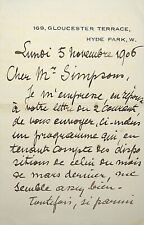 169, GLOUCESTER TERRACE,
HYDE PARK, W.
Lundi 5 Novembre 1906
Cher Mr Simpson,
Je m'empresse, en réponse
à votre lettre du 2 courant
de vous envoyer, ci-inclus
un programme qui en
tenant compte des dispo
sitions de celui du mois
de mars dernier, me
semble assez bien.
Toutefois, si parmi